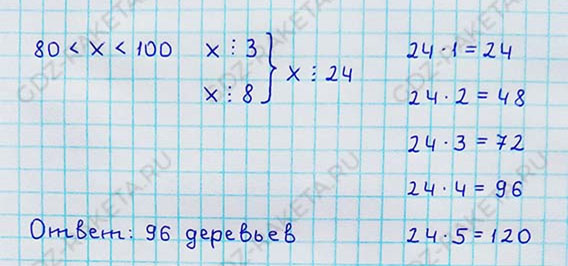 80 < x < 100 x ⋮ 3 } x ⋮ 24
x ⋮ 8
24 · 1 = 24
24 · 2 = 48
24 · 3 = 72
24 · 4 = 96
24 · 5 = 120
Ответ: 96 деревьев
GDZ-RAKETA.RU